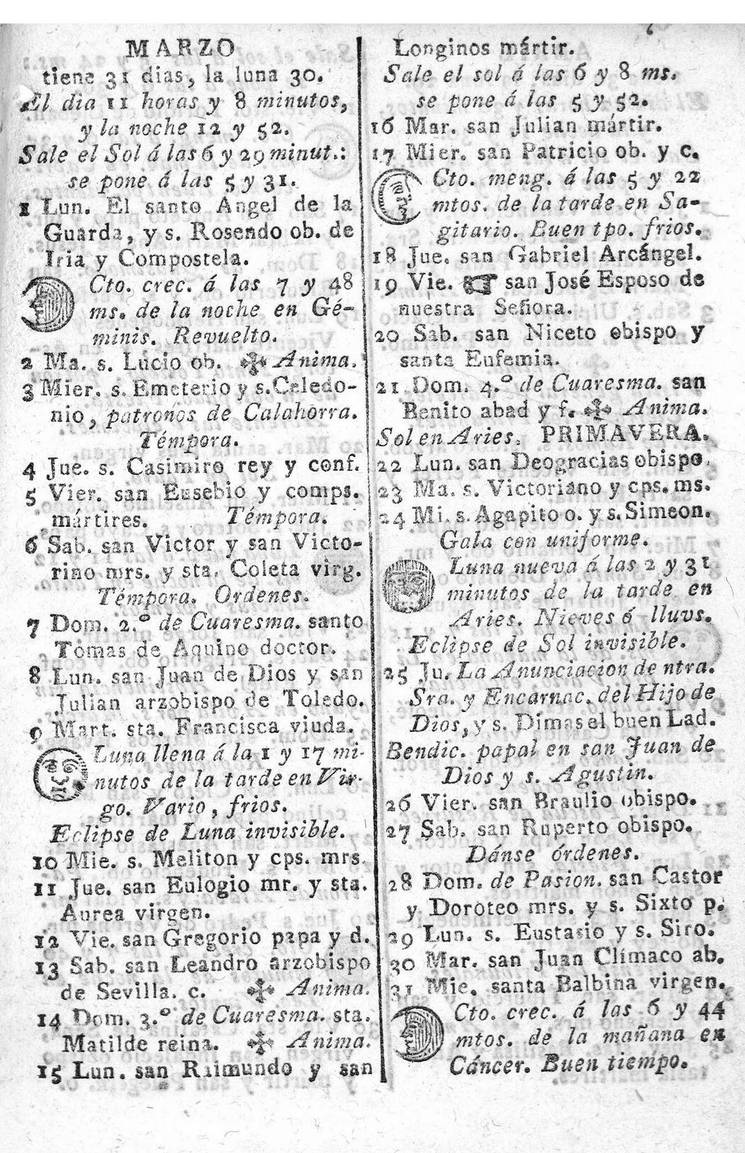 MARZO
tiene 31 dias, la luna 30.
El dia 11 horas y 8 minutos,
y la noche 12 y 52.
Sale el Sol á las 6 y 29 minut.:
se pone á las 5 y 31.
1 Lun. El santo Angel de la
Guarda, y s. Rosendo ob. de
Iria y Compostela.
Cto. crec. á las 7 y 48
ms. de la noche en Gé-
minis. Revuelto.
2 Ma. s. Lucio ob. ✠ Anima.
3 Mier. s. Emeterio y s. Celedo-
nio, patronos de Calahorra.
Témpora.
4 Jue. s. Casimiro rey y conf.
5 Vier. san Eusebio y comps.
mártires. Témpora.
6 Sab. san Victor y san Victo-
rino mrs. y sta. Coleta virg.
Témpora. Ordenes.
7 Dom. 2.º de Cuaresma. santo
Tomas de Aquino doctor.
8 Lun. san Juan de Dios y san
Julian arzobispo de Toledo.
9 Mart. sta. Francisca viuda.
Luna llena á la 1 y 17 mi-
nutos de la tarde en Vir-
go. Vario, frios.
Eclipse de Luna invisible.
10 Mie. s. Meliton y cps. mrs.
11 Jue. san Eulogio mr. y sta.
Aurea virgen.
12 Vie. san Gregorio papa y d.
13 Sab. san Leandro arzobispo
de Sevilla. c. ✠ Anima.
14 Dom. 3.º de Cuaresma. sta.
Matilde reina. ✠ Anima.
15 Lun. san Raimundo y san
Longinos mártir.
Sale el sol á las 6 y 8 ms.
se pone á las 5 y 52.
16 Mar. san Julian mártir.
17 Mier. san Patricio ob. y c.
Cto. meng. á las 5 y 22
mtos. de la tarde en Sa-
gitario. Buen tpo. frios.
18 Jue. san Gabriel Arcángel.
19 Vie. ☛ san José Esposo de
nuestra Señora.
20 Sab. san Niceto obispo y
santa Eufemia.
21 Dom. 4.º de Cuaresma. san
Benito abad y f. ✠ Anima.
Sol en Aries. PRIMAVERA.
22 Lun. san Deogracias obispo.
23 Ma. s. Victoriano y cps. ms.
24 Mi. s. Agapito o. y s. Simeon.
Gala con uniforme.
Luna nueva á las 2 y 31
minutos de la tarde en
Aries. Nieves ó lluvs.
Eclipse de Sol invisible.
25 Ju. La Anunciacion de ntra.
Sra. y Encarnac. del Hijo de
Dios, y s. Dimas el buen Lad.
Bendic. papal en san Juan de
Dios y s. Agustin.
26 Vier. san Braulio obispo.
27 Sab. san Ruperto obispo.
Dánse órdenes.
28 Dom. de Pasion. san Castor
y Doroteo mrs. y s. Sixto p.
29 Lun. s. Eustasio y s. Siro.
30 Mar. san Juan Clímaco ab.
31 Mie. santa Balbina virgen.
Cto. crec. á las 6 y 44
mtos. de la mañana en
Cáncer. Buen tiempo.